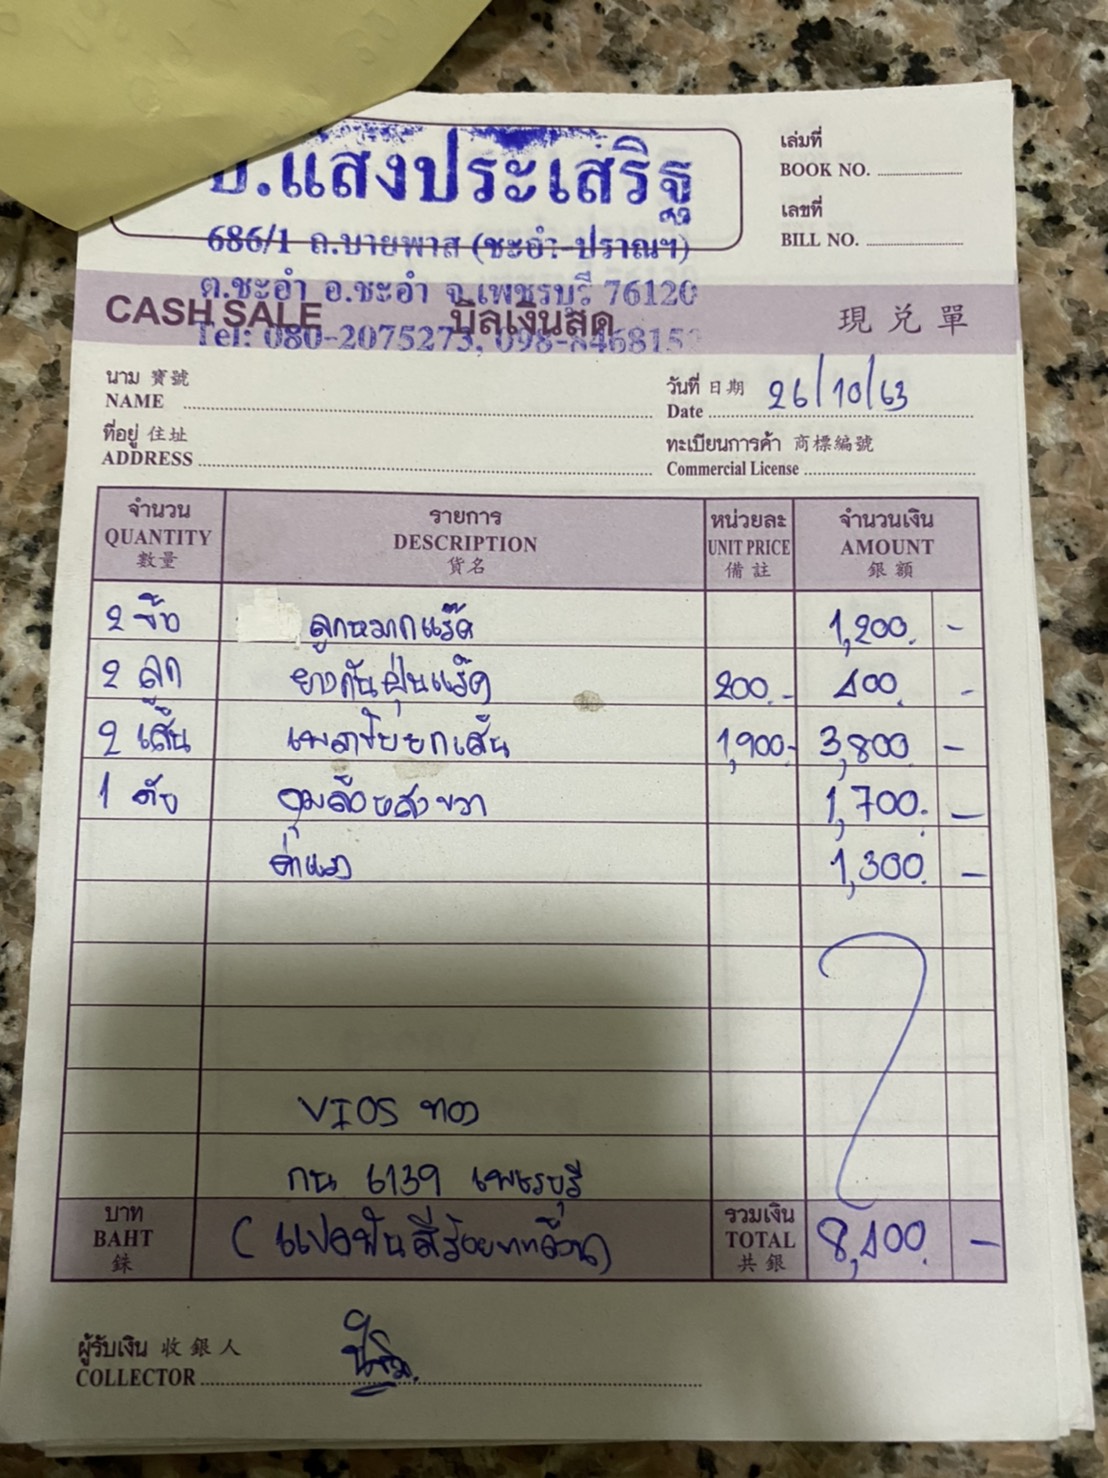 อ.แสงประเสริฐ
686/1 ถ.บายพาส (ชะอำ-ปราณฯ)
ต.ชะอำ อ.ชะอำ จ.เพชรบุรี 76120
Tel: 080-2075273, 098-846815
เล่มที่
BOOK NO.
เลขที่
BILL NO.
CASH SALE บิลเงินสด 現兌單
นาม 寶號
NAME
วันที่ 日期 26/10/63
Date
ที่อยู่ 住址
ADDRESS
ทะเบียนการค้า 商標編號
Commercial License
จำนวน รายการ หน่วยละ จำนวนเงิน
QUANTITY DESCRIPTION UNIT PRICE AMOUNT
數量 貨名 備註 銀額
2 ลูกหมากแร็ค 1,200.-
2 ลูก ยางกันฝุ่นแร็ค 200.- 400.-
2 เส้น เพลาขับยกเส้น 1,900.- 3,800.-
1 ตัว ดุมล้อหลังขวา 1,700.-
ค่าแรง 1,300.-
VIOS ทอง
กน 6139 เพชรบุรี
บาท รวมเงิน
BAHT (แปดพันสี่ร้อยบาทถ้วน) TOTAL 8,400.-
銖 共銀
ผู้รับเงิน 收銀人
COLLECTOR